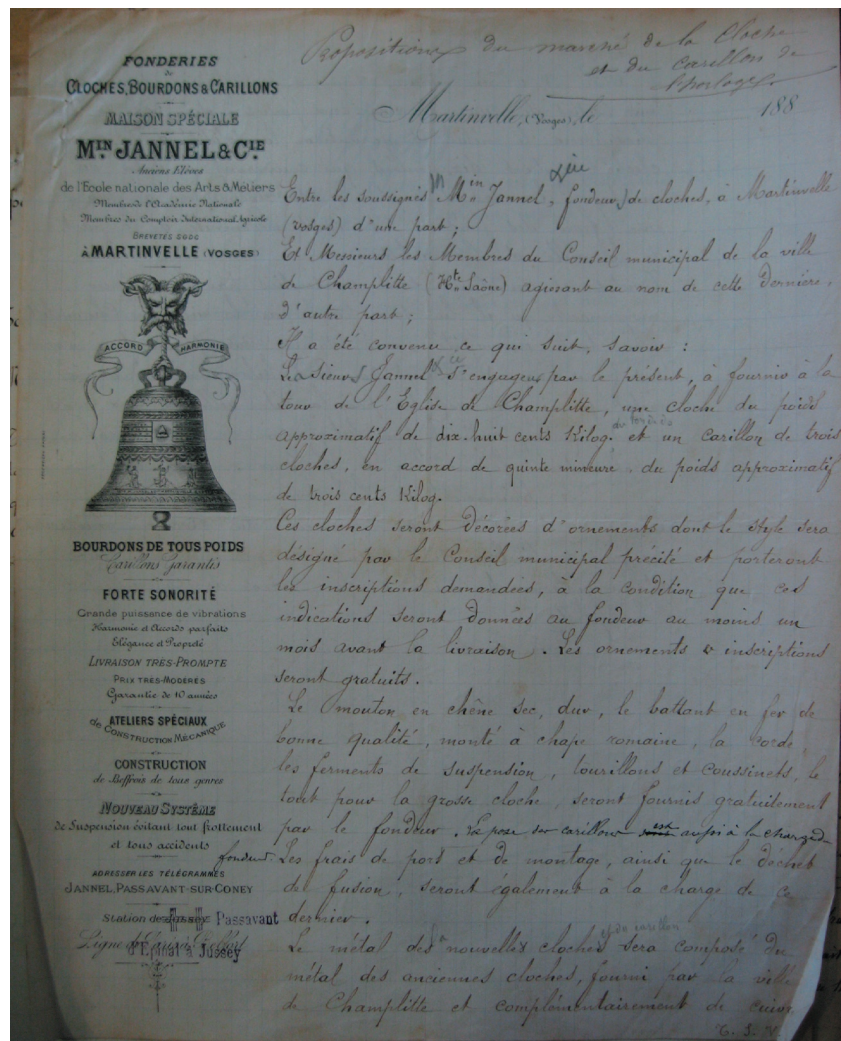 Propositions du marché de la Cloche
et du carillon de
l'horloge.
FONDERIES
de
CLOCHES, BOURDONS & CARILLONS
MAISON SPÉCIALE
MIN JANNEL & CIE
Anciens Elèves
de l'Ecole nationale des Arts & Métiers
Membres de l'Académie Nationale
Membres du Comptoir International Agricole
BREVETÉS SGDG
À MARTINVELLE (VOSGES)
ACCORD HARMONIE
BOURDONS DE TOUS POIDS
Carillons Garantis
FORTE SONORITÉ
Grande puissance de vibrations
Harmonie et Accords parfaits
Elégance et Propreté
LIVRAISON TRÈS-PROMPTE
PRIX TRÈS-MODÉRÉS
Garantie de 10 années
ATELIERS SPÉCIAUX
de CONSTRUCTION MÉCANIQUE
CONSTRUCTION
de Beffrois de tous genres
NOUVEAU SYSTÈME
de Suspension évitant tout frottement
et tous accidents
ADRESSER LES TÉLÉGRAMMES
JANNEL, PASSAVANT-SUR-CONEY
Station de Passavant
Ligne de
d'Epinal à Jussey
Martinvelle, (Vosges), le 188
Entre les soussignés Min Jannel, fondeur, de cloches, à Martinvelle
(Vosges) d'une part;
Et Messieurs les Membres du Conseil municipal de la ville
de Champlitte (Hte Saône) agissant au nom de cette dernière,
d'autre part;
Il a été convenu ce qui suit, savoir :
Les sieurs Jannel & Cie s'engagent par le présent, à fournir à la
tour de l'Eglise de Champlitte, une cloche du poids
approximatif de dix-huit cents Kilog. et un carillon de trois
cloches, en accord de quinte mineure, du poids approximatif
de trois cents Kilog.
Ces cloches seront décorées d'ornements dont le style sera
désigné par le Conseil municipal précité et porteront
les inscriptions demandées, à la condition que ces
indications seront données au fondeur au moins un
mois avant la livraison. Les ornements & inscriptions
seront gratuits.
Le mouton en chêne sec, dur, le battant en fer de
bonne qualité, monté à chape romaine, la corde,
les ferments de suspension, tourillons et coussinets, le
tout pour la grosse cloche, seront fournis gratuitement
par le fondeur. La pose du carillon est aussi à la charge du
fondeur. Les frais de port et de montage, ainsi que le déchet
de fusion, seront également à la charge de ce
dernier.
et du carillon
Le métal des nouvelles cloches sera composé du
métal des anciennes cloches, fourni par la ville
de Champlitte et complémentairement de cuivre
T. S. V.